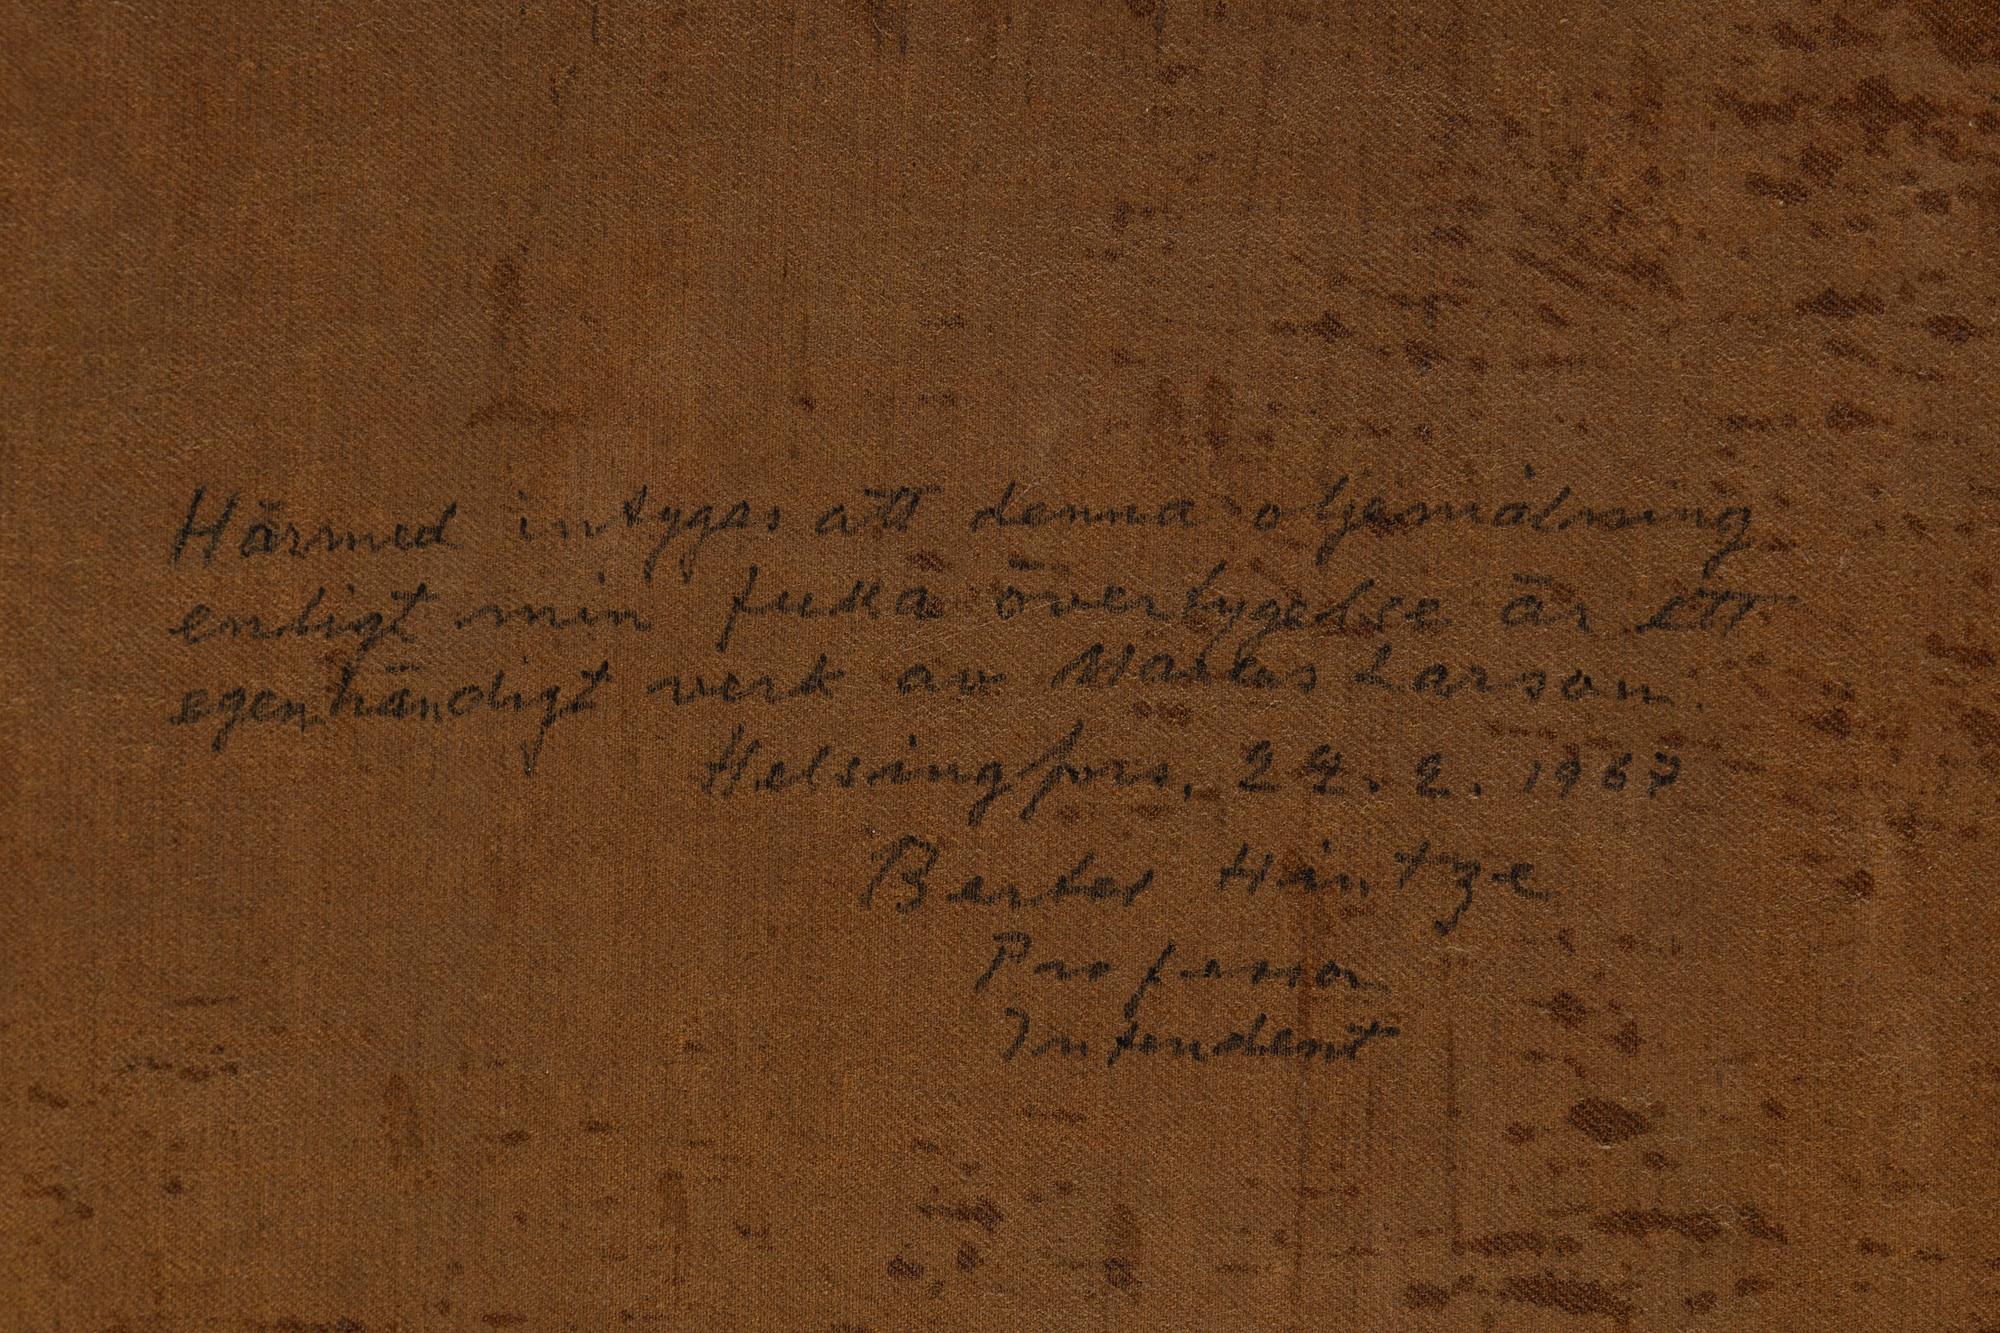 Härmed intygas att denna oljemålning
enligt min fulla övertygelse är ett
egenhändigt verk av Marcus Larson.
Helsingfors, 24.2.1967
Bertel Hintze
Professor
Intendent